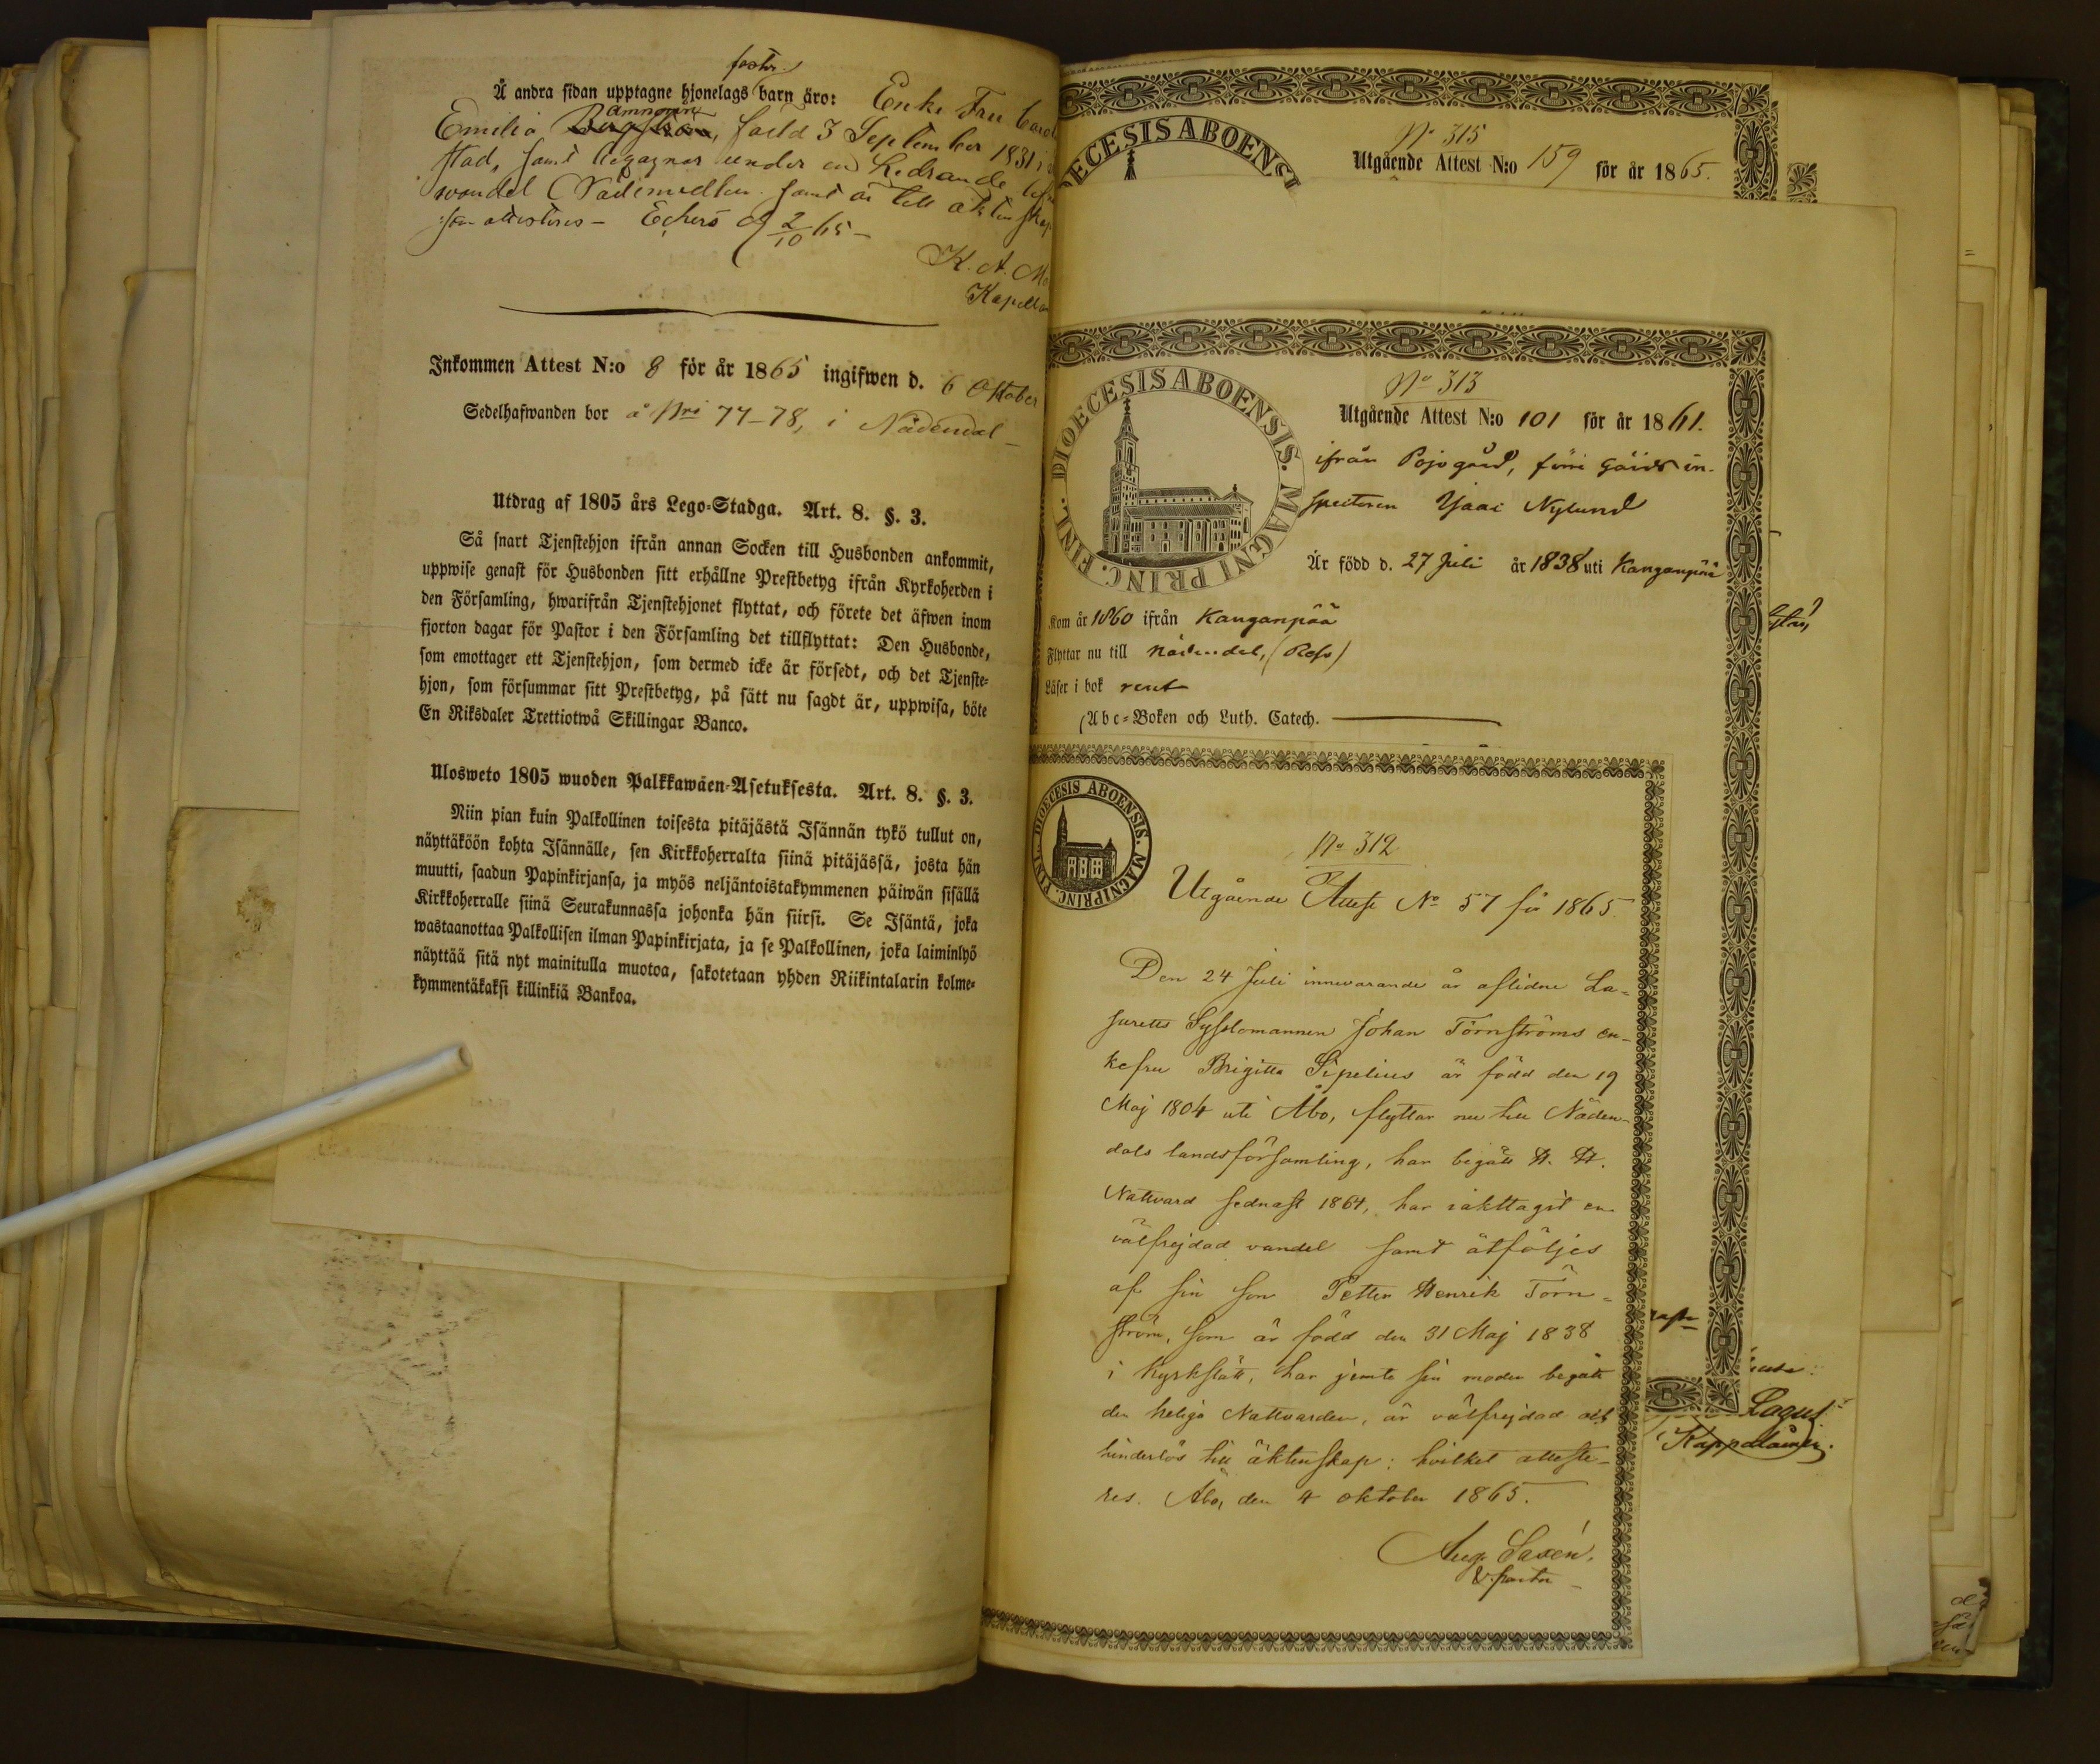 foster
Å andra sidan upptagne hjonelags barn äro: Enke Fru
Emilia Amnorin, född 3 September 1831 i
stad, samt begagnar under en hedrande
vandel Nådemedlen samt är till äktenskap
attesteres – Eckerö d 2/10 65 –
K. A.
Kapellan
Inkommen Attest N:o 8 för år 1865 ingifwen d. 6 Oktober
Sedelhafwanden bor å Nro 77–78, i Nådendal –
Utdrag af 1805 års Lego-Stadga. Art. 8. §. 3.
Så snart Tjenstehjon ifrån annan Socken till Husbonden ankommit,
uppwise genast för Husbonden sitt erhållne Prestbetyg ifrån Kyrkoherden i
den Församling, hwarifrån Tjenstehjonet flyttat, och förete det äfwen inom
fjorton dagar för Pastor i den Församling det tillflyttat: Den Husbonde,
som emottager ett Tjenstehjon, som dermed icke är försedt, och det Tjenste-
hjon, som försummar sitt Prestbetyg, på sätt nu sagdt är, uppwisa, böte
En Riksdaler Trettiotwå Skillingar Banco.
Ulosweto 1805 wuoden Palkkawäen-Asetuksesta. Art. 8. §. 3.
Niin pian kuin Palkollinen toisesta pitäjästä Isännän tykö tullut on,
näyttäköön kohta Isännälle, sen Kirkkoherralta siinä pitäjässä, josta hän
muutti, saadun Papinkirjansa, ja myös neljäntoistakymmenen päiwän sisällä
Kirkkoherralle siinä Seurakunnassa johonka hän siirsi. Se Isäntä, joka
wastaanottaa Palkollisen ilman Papinkirjata, ja se Palkollinen, joka laiminlyö
näyttää sitä nyt mainitulla muotoa, sakotetaan yhden Riikintalarin kolme-
kymmentäkaksi killinkiä Bankoa.
DIOECESIS ABOENSI
No 315
Utgående Attest N:o 159 för år 1865.
DIOECESIS ABOENSIS. MAGNI PRINC. FINL.
No 313
Utgående Attest N:o 101 för år 1861.
ifrån Pojogård, förre Gårds in-
spectoren Isaac Nylund
Är född d. 27 Juli år 1838 uti Kanganpää
Kom år 1860 ifrån Kanganpää
Flyttar nu till Nådendal, (Reso)
Läser i bok rent
Abc-Boken och Luth. Catech.
DIOECESIS ABOENSIS. MAGNI PRINC. FINL.
No 312
Utgående Attest No 57 för 1865
Den 24 Juli innevarande år aflidne La-
saretts Sysslomannen Johan Törnströms en-
kefru Brigitta Sipelius är född den 19
Maj 1804 uti Åbo, flyttar nu till Nåden-
dals landsförsamling, har begått H. H.
Nattvard sednast 1864, har iakttagit en
välfrejdad vandel samt åtföljes
af sin son Petter Henrik Törn-
ström, som är född den 31 Maj 1838
i Kyrkslätt, har jemte sin moder begått
den heliga Nattvarden, är välfrejdad och
hinderlös till äktenskap; hvilket atteste-
res. Åbo, den 4 oktober 1865.
Aug. Saxén,
v. pastor
Lagus
Kappalainen.